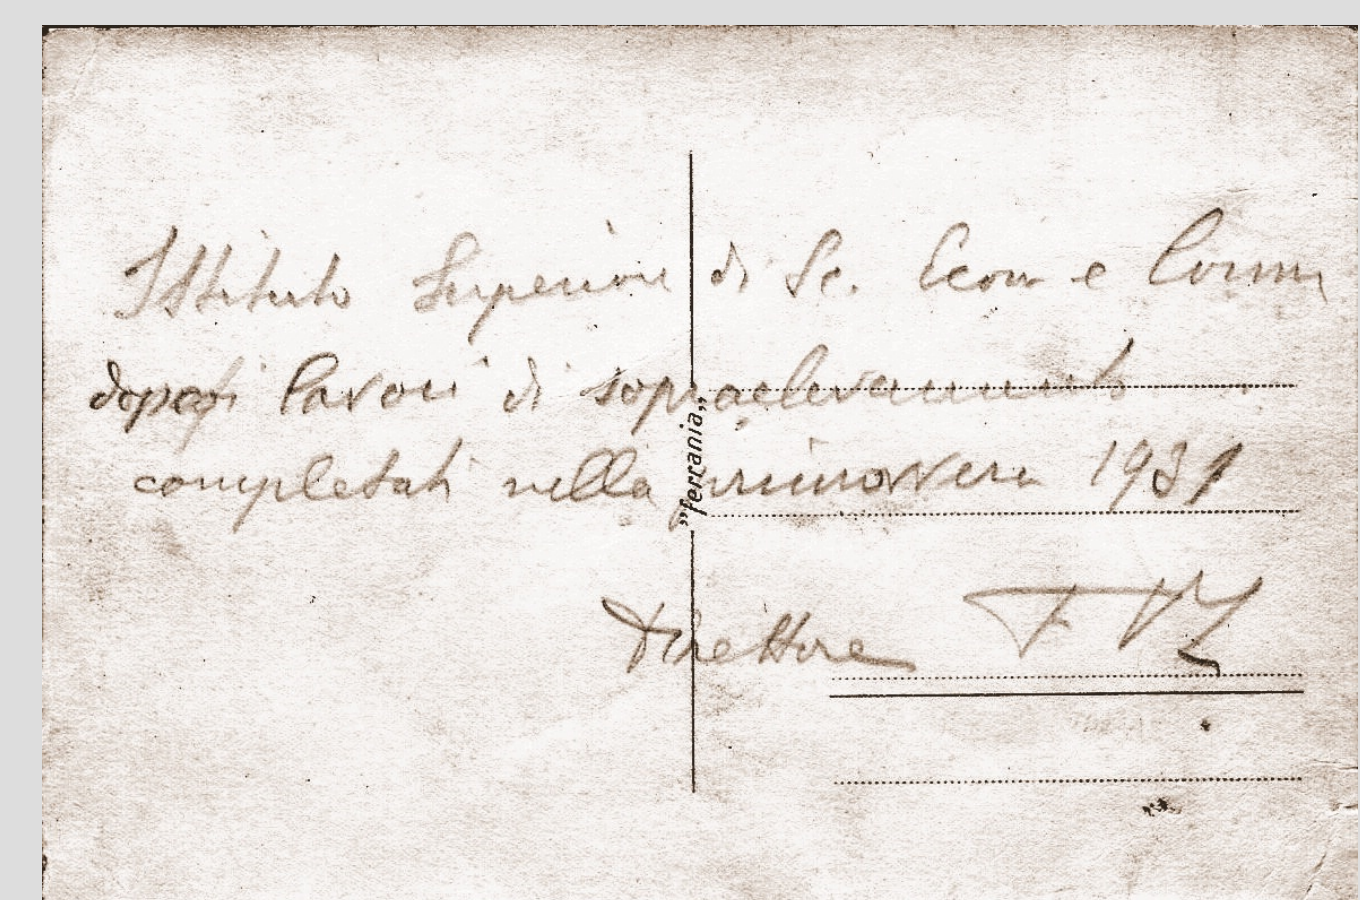 Istituto Superiore di Sc. Econ e Comm
dopo i lavori di sopraelevamento
completati nella primavera 1931
„ferrania„
Direttore